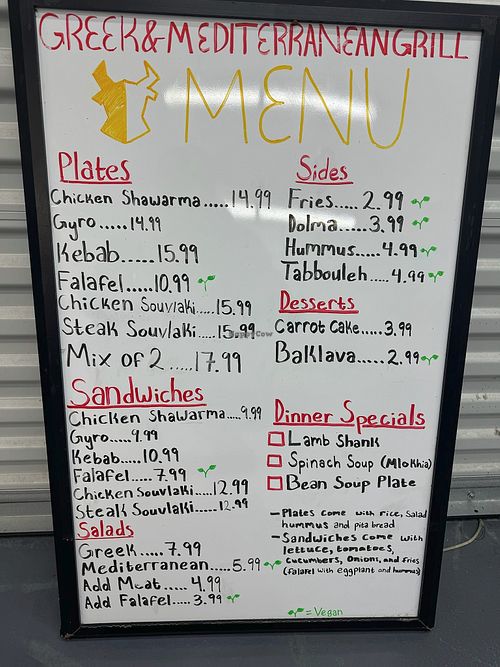 GREEK&MEDITERRANEANGRILL
MENU
Plates
Chicken Shawarma.....14.99
Gyro......14.99
Kebab.....15.99
Falafel.....10.99
Chicken Souvlaki.....15.99
Steak Souvlaki.....15.99
Mix of 2.....17.99
Sandwiches
Chicken Shawarma.....9.99
Gyro.....9.99
Kebab.....10.99
Falafel.....7.99
Chicken Souvlaki....12.99
Steak Souvlaki.....12.99
Salads
Greek.....7.99
Mediterranean.....5.99
Add Meat.....4.99
Add Falafel.....3.99
Sides
Fries.....2.99
Dolma.....3.99
Hummus.....4.99
Tabbouleh....4.99
Desserts
Carrot Cake.....3.99
Baklava.....2.99
Dinner Specials
Lamb Shank
Spinach Soup (Mlokhia)
Bean Soup Plate
- Plates come with rice, Salad
hummus and pita bread
- Sandwiches come with
lettuce, tomatoes,
cucumbers, Onions, and fries
(falafel with eggplant and hummus)
= Vegan
HappyCow